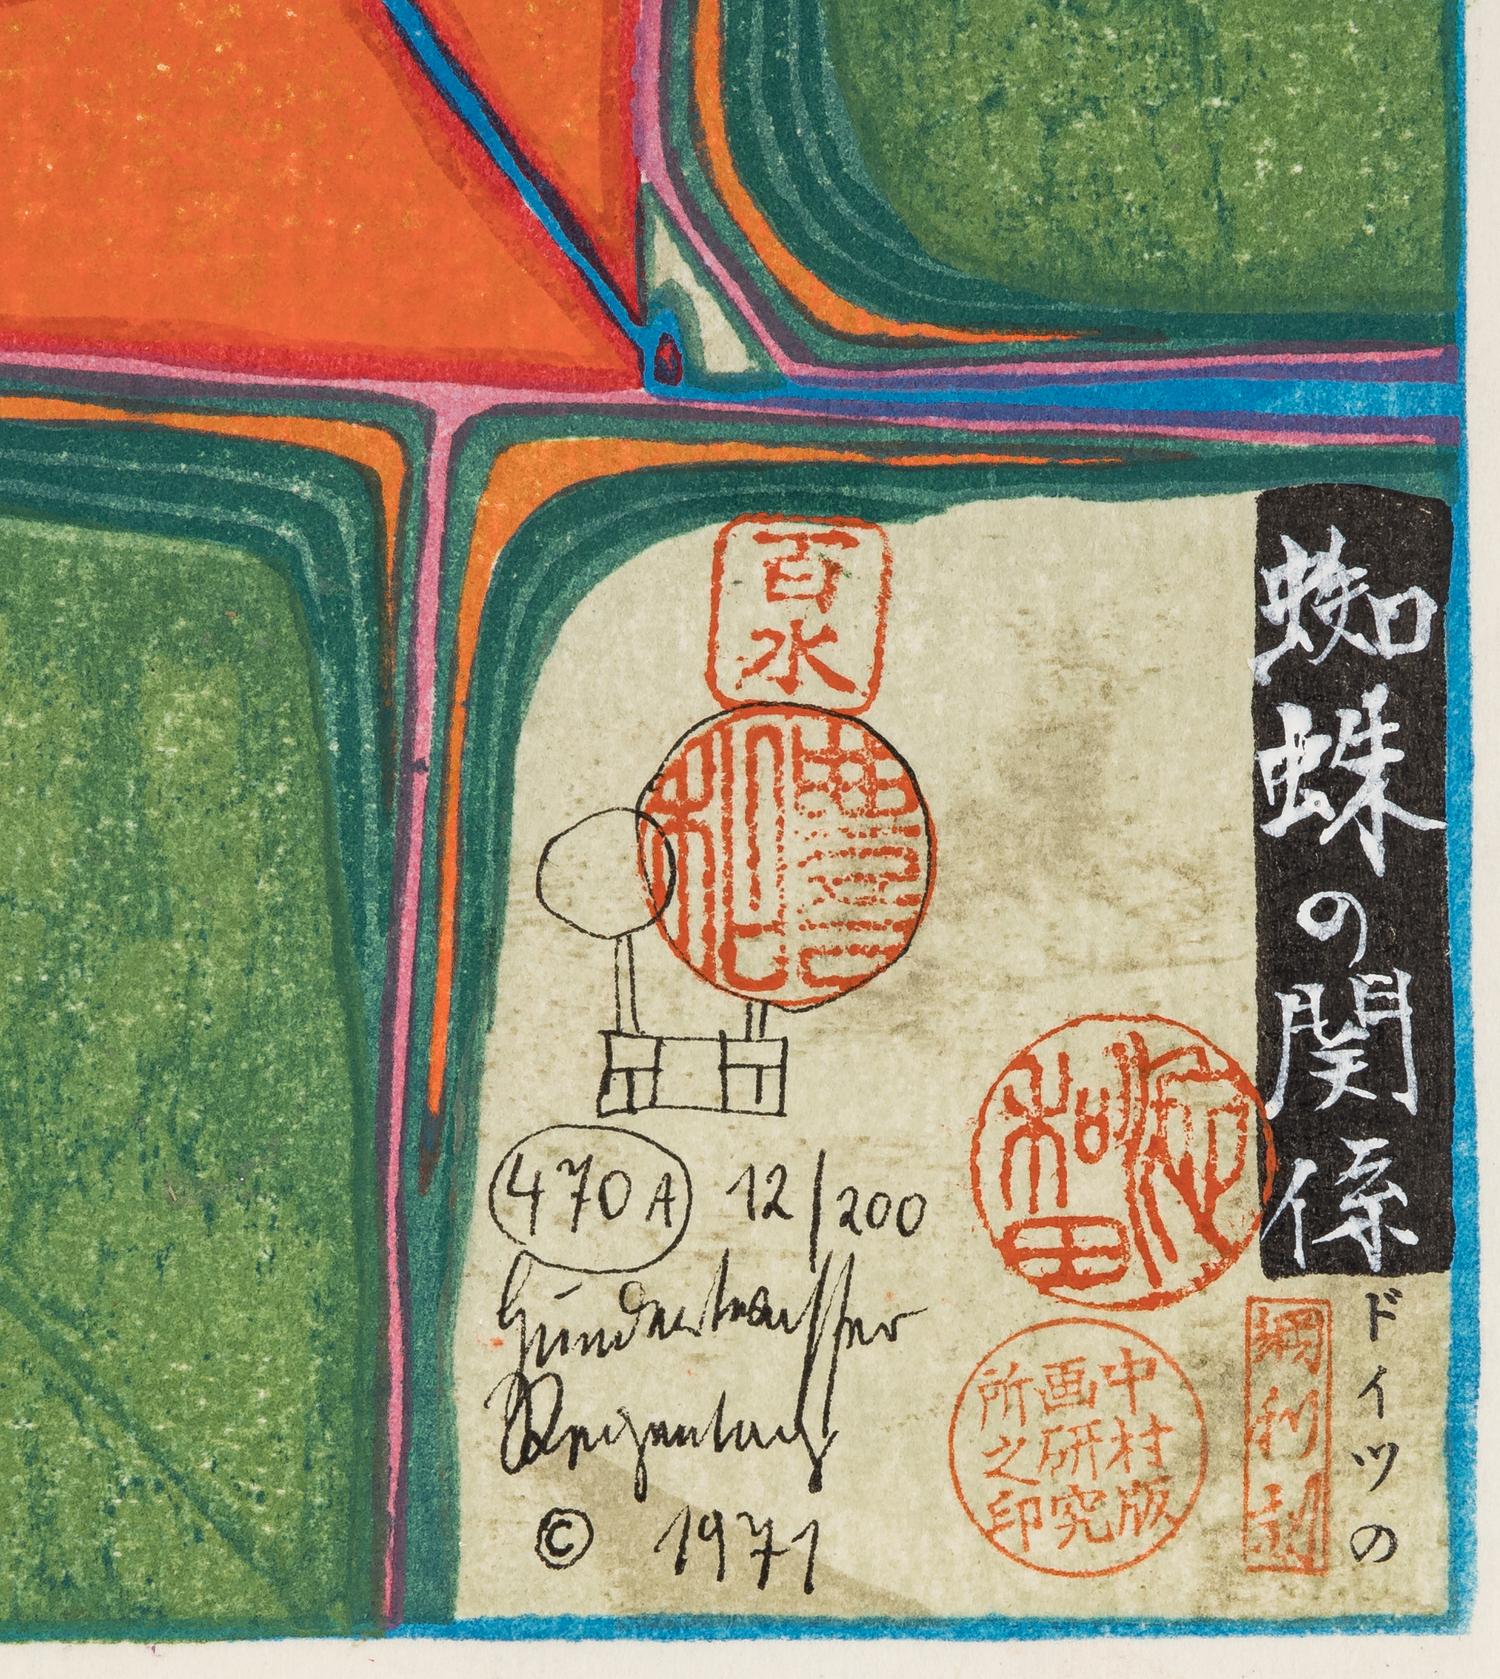 蜘蛛の関係
ドイツの
百水
豊和
470A 12/200
Hundertwasser
Regentag
© 1971
中村版
画研究
所之印
綱利刻